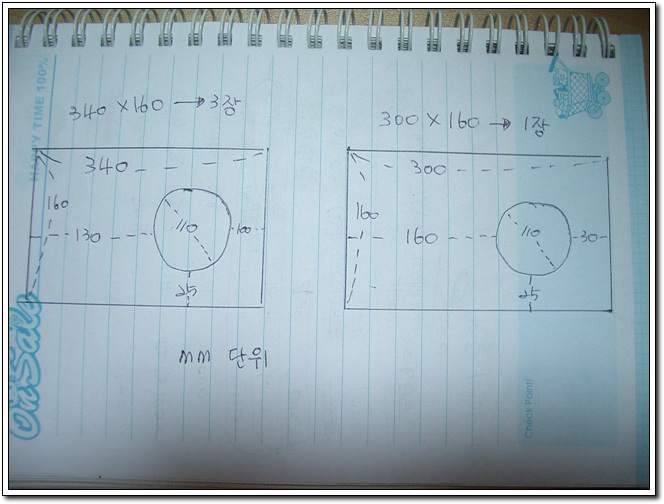 340 × 160 → 3장
340
160
130
110
100
25
300 × 160 → 1장
300
160
160
110
30
25
mm 단위
HAPPY TIME 100%
On Sale
Check Point!